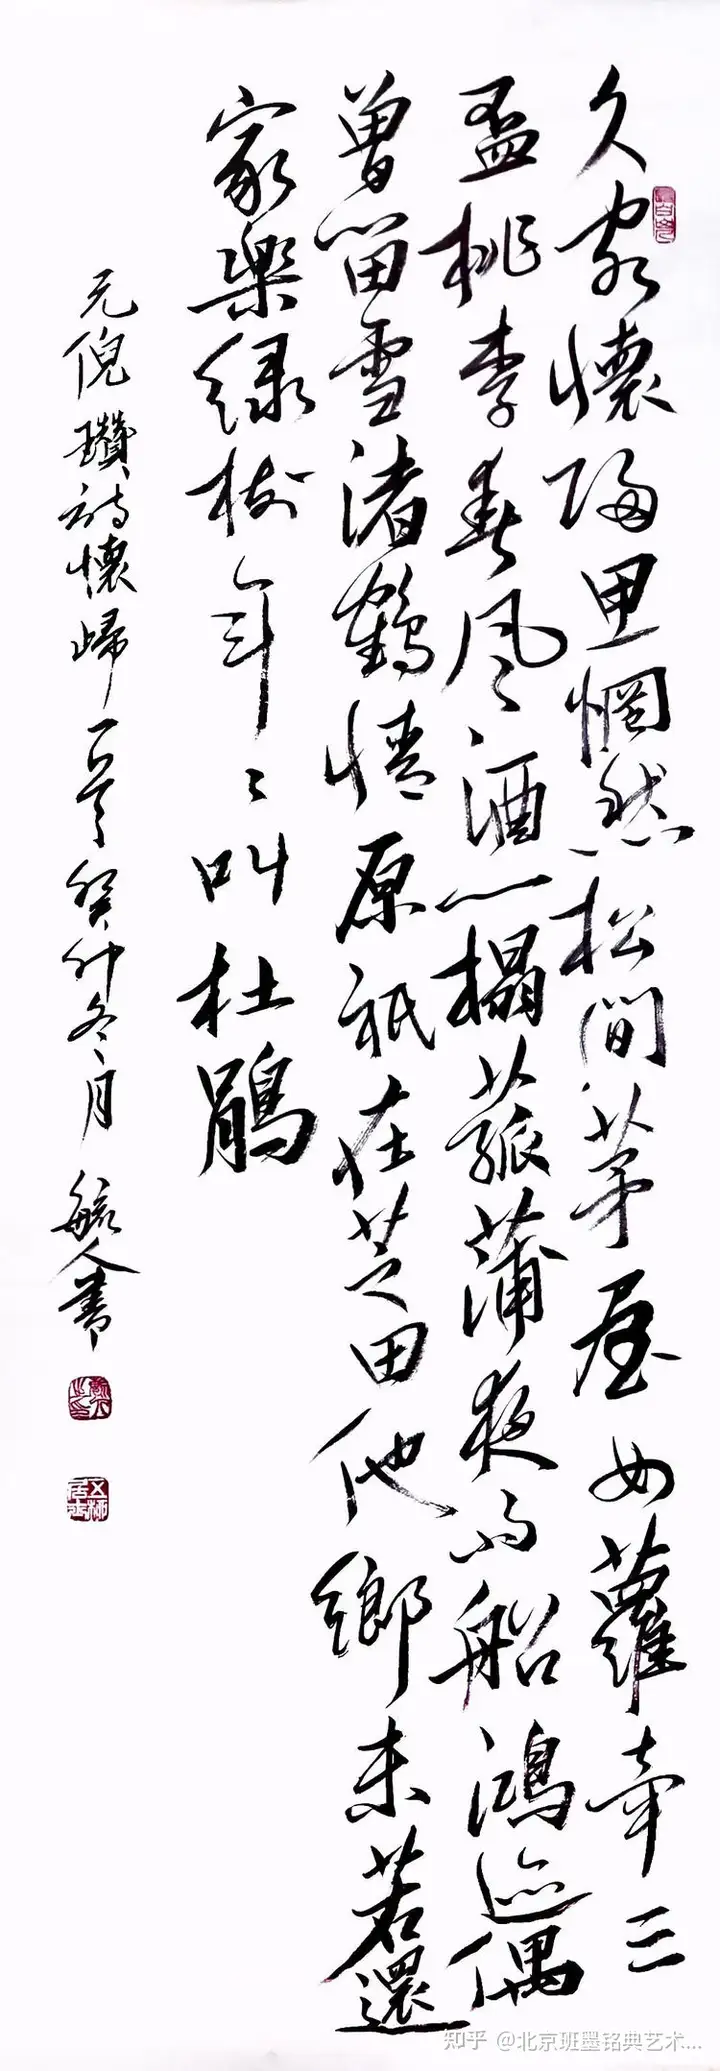 久客懷歸思惘然松間茅屋女蘿牽三
盃桃李春風酒一榻菰蒲夜雨船鴻迹偶
曾留雪渚鶴情原祇在芝田他鄉未若還
家樂緑树年〻叫杜鵑
元倪瓚詩懷歸一首癸卯冬月毓人書
知乎 @北京班墨铭典艺术...